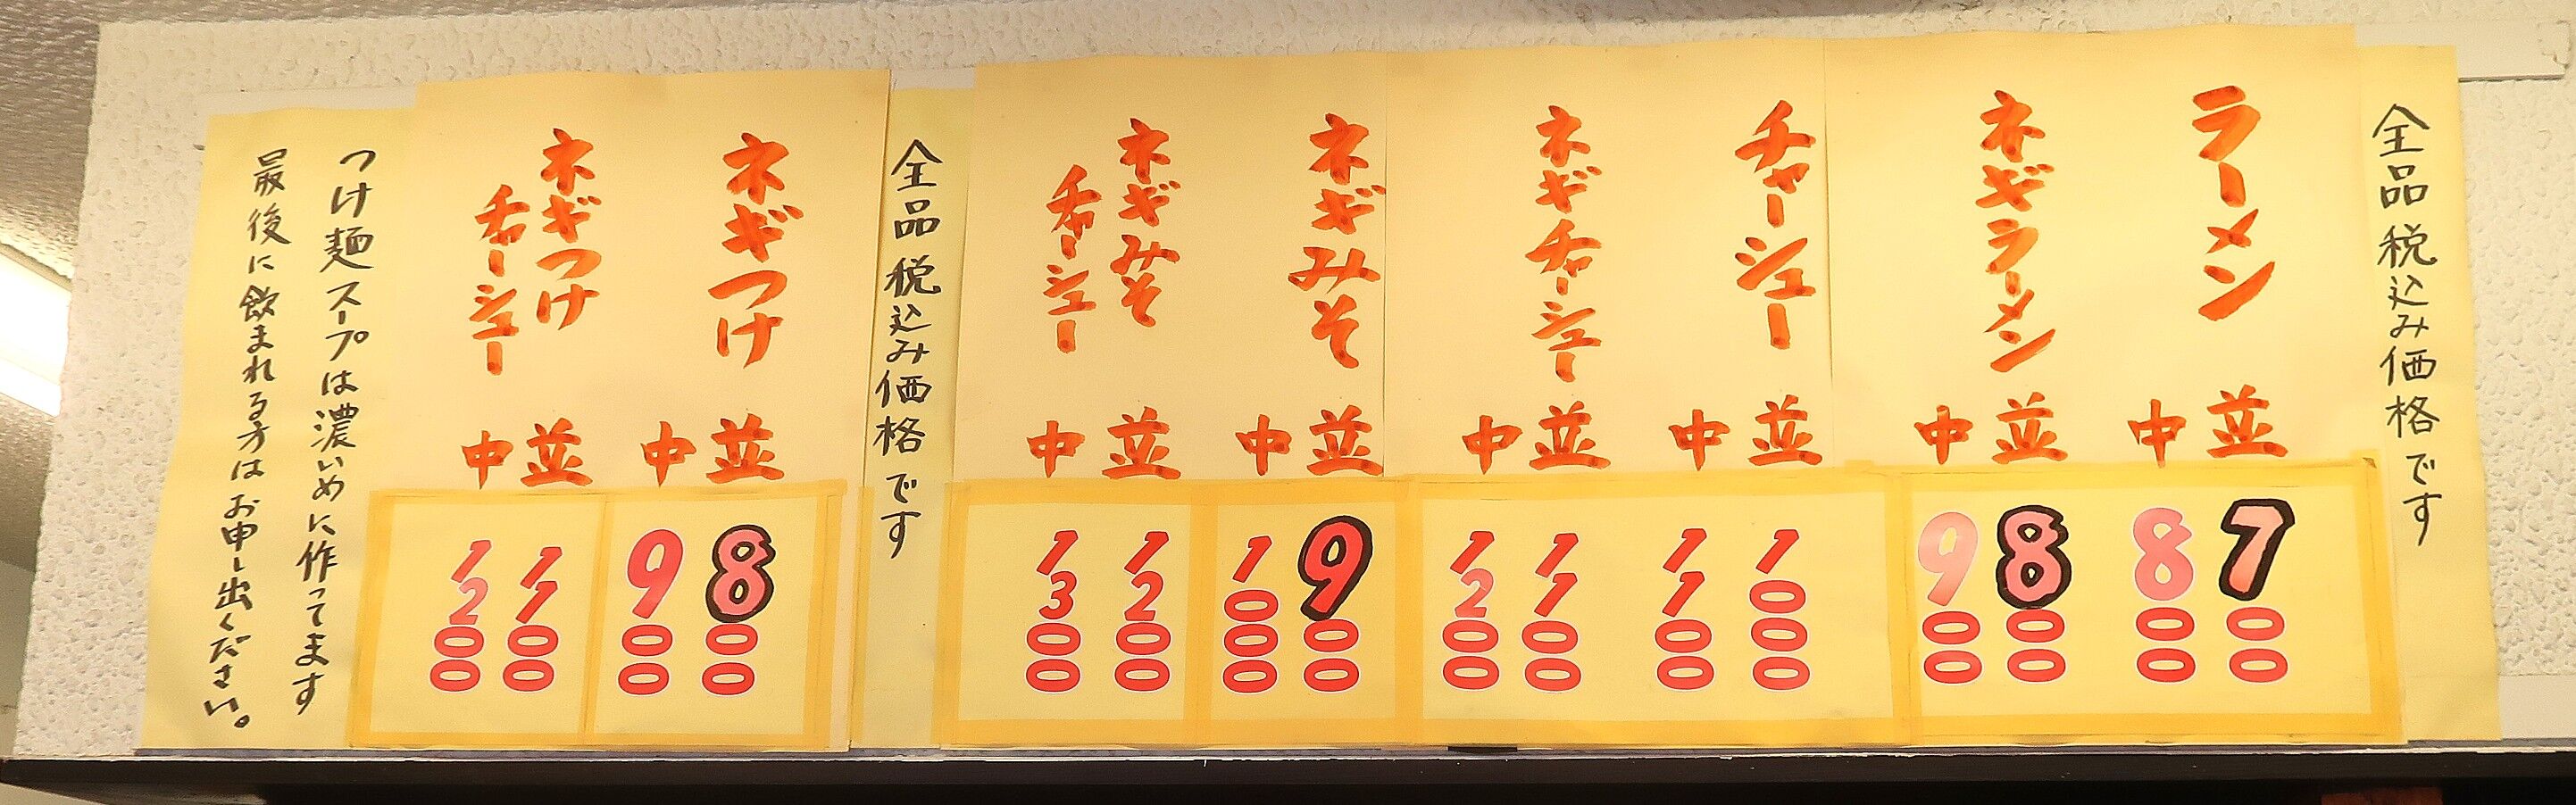 全品税込み価格です
ラーメン
並 700
中 800
ネギラーメン
並 800
中 900
チャーシュー
並 1000
中 1100
ネギチャーシュー
並 1100
中 1200
ネギみそ
並 900
中 1000
ネギみそ
チャーシュー
並 1200
中 1300
全品税込み価格です
ネギつけ
並 800
中 900
ネギつけ
チャーシュー
並 1100
中 1200
つけ麺スープは濃いめに作ってます
最後に飲まれる方はお申し出ください。